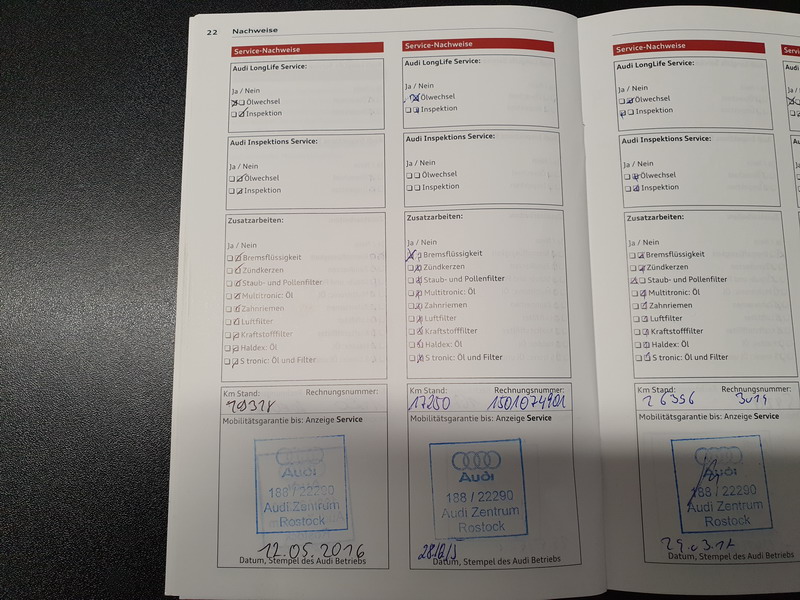 22 Nachweise
Service-Nachweise
Audi LongLife Service:
Ja / Nein
Ölwechsel
Inspektion
Audi Inspektions Service:
Ja / Nein
Ölwechsel
Inspektion
Zusatzarbeiten:
Ja / Nein
Bremsflüssigkeit
Zündkerzen
Staub- und Pollenfilter
Multitronic: Öl
Zahnriemen
Luftfilter
Kraftstofffilter
Haldex: Öl
S tronic: Öl und Filter
Km Stand: Rechnungsnummer:
Mobilitätsgarantie bis: Anzeige Service
Audi
188 / 22290
Audi Zentrum
Rostock
12.05.2016
Datum, Stempel des Audi Betriebs
Service-Nachweise
Audi LongLife Service:
Ja / Nein
Ölwechsel
Inspektion
Audi Inspektions Service:
Ja / Nein
Ölwechsel
Inspektion
Zusatzarbeiten:
Ja / Nein
Bremsflüssigkeit
Zündkerzen
Staub- und Pollenfilter
Multitronic: Öl
Zahnriemen
Luftfilter
Kraftstofffilter
Haldex: Öl
S tronic: Öl und Filter
Km Stand: Rechnungsnummer:
17250 1501074901
Mobilitätsgarantie bis: Anzeige Service
Audi
188 / 22290
Audi Zentrum
Rostock
Datum, Stempel des Audi Betriebs
Service-Nachweise
Audi LongLife Service:
Ja / Nein
Ölwechsel
Inspektion
Audi Inspektions Service:
Ja / Nein
Ölwechsel
Inspektion
Zusatzarbeiten:
Ja / Nein
Bremsflüssigkeit
Zündkerzen
Staub- und Pollenfilter
Multitronic: Öl
Zahnriemen
Luftfilter
Kraftstofffilter
Haldex: Öl
S tronic: Öl und Filter
Km Stand: Rechnungsnummer:
26356
Mobilitätsgarantie bis: Anzeige Service
Audi
188 / 22290
Audi Zentrum
Rostock
29.03.17
Datum, Stempel des Audi Betriebs